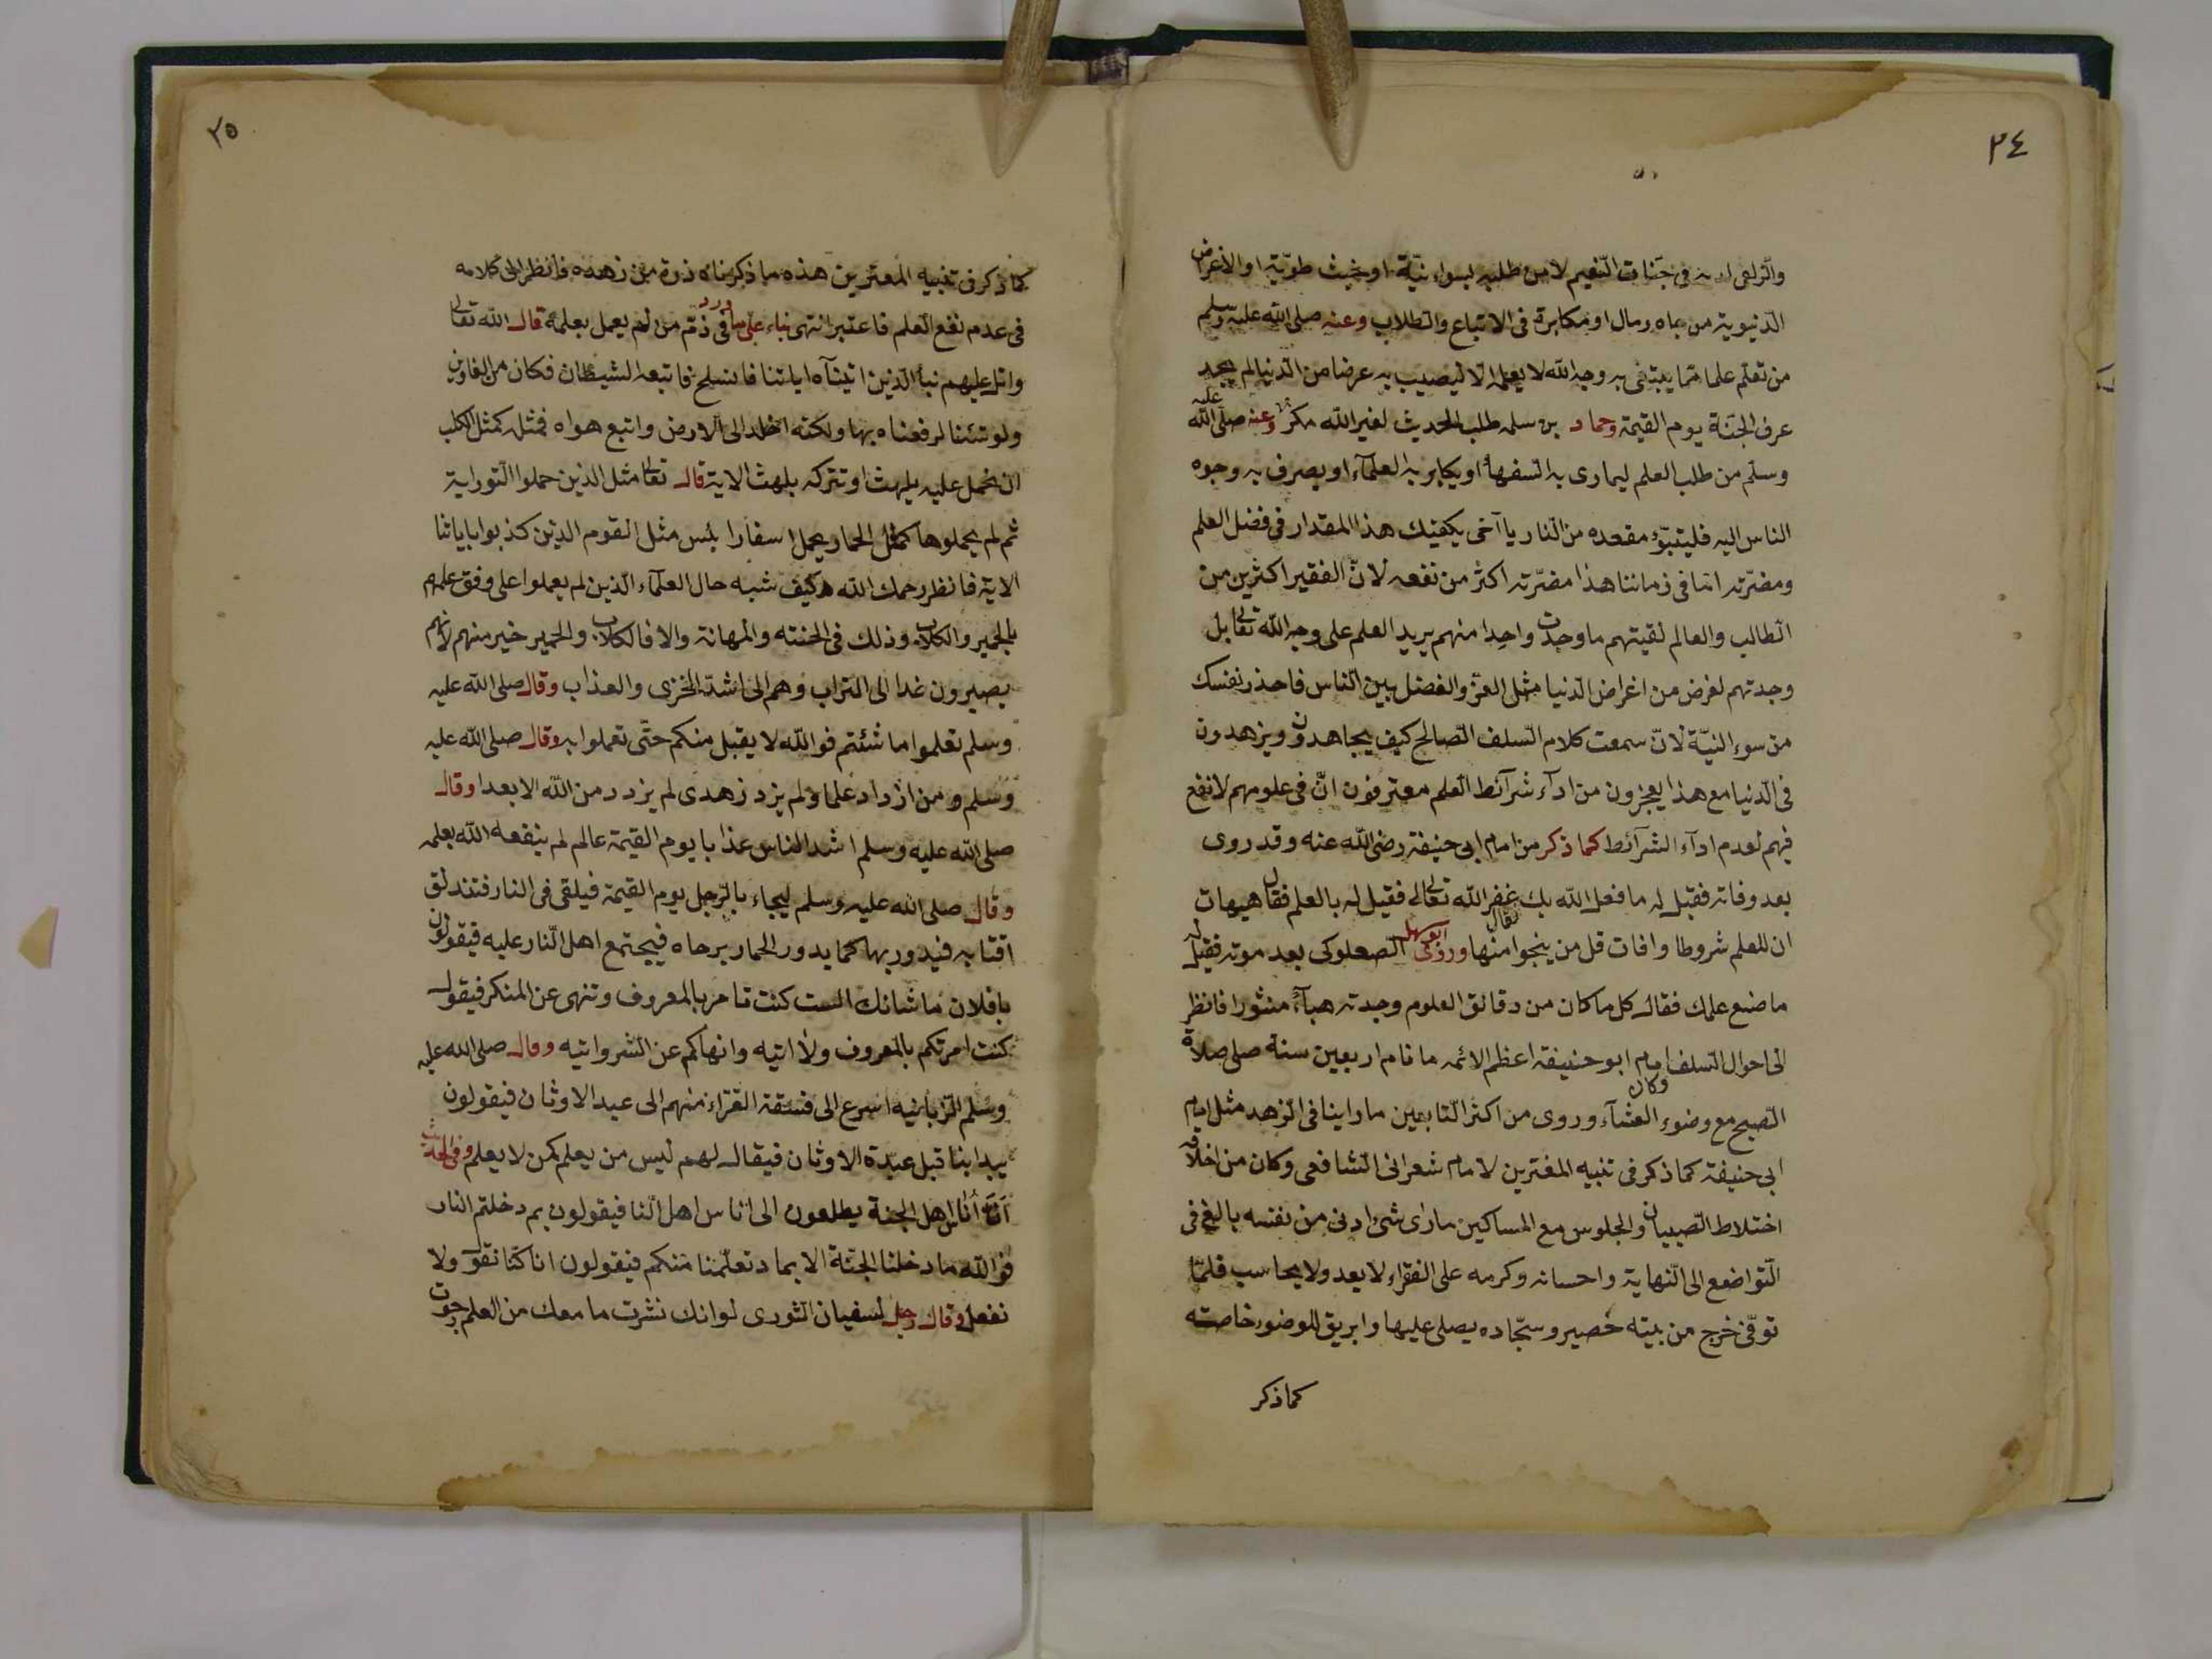 ٣٤
والزلفى لديه فى جنات النعيم لا من طلبه لسوء نيّة او بخبث طويّة او الاغراض
الدنيوية من جاه ومال او مكابرة فى الاتباع والطلاب وعنه صلى الله عليه وسلم
من تعلم علما مما يبتغى به وجه الله لا يعلمه الا ليصيب به عرضا من الدنيا لم يجد
عرف الجنة يوم القيمة وحماد بن سلمه طلب الحديث لغير الله مكر به وعنه صلى الله عليه
وسلم من طلب العلم ليمارى به السفهاء او يكابر به العلمآء او يصرف به وجوه
الناس اليه فليتبوّء مقعده من النار يا آخى يكفيك هذا المقدار فى فضل العلم
ومضرّته انما فى زماننا هذا مضرّته اكثر من نفعه لانّ الفقير اكثرين من
الطالب والعالم لقيتهم ما وجدت واحدا منهم يريد العلم على وجه الله تعالى بل
وجدتهم لغرض من اغراض الدنيا مثل العزّ والفضل بين الناس فاحذر نفسك
من سوء النيّة لانّ سمعت كلام السلف الصالح كيف يجاهدون ويزهدون
فى الدنيا مع هذا يعجزون من ادآء شرآئط العلم معترفون انّ فى علومهم لا نفع
فيهم لعدم ادآء الشرآئط كما ذكر من امام ابى حنيفة رضى الله عنه وقد روى
بعد وفاته فقيل له ما فعل الله بك غفر الله تعالى فقيل له بالعلم فقال هيهات
ان للعلم شروطا وافات قل من ينجوا منها وروى ابو سهل الصعلوكى بعد موته فقيل له
ما صنع علمك فقال كل ما كان من دقائق العلوم وجدته هبآء منثورا فانظر
الى احوال السلف امام ابو حنيفة اعظم الائمه ما نام اربعين سنة صلى صلاة
الصبح مع وضوء العشآء وروى من اكثر التابعين ما راينا فى الزهد مثل امام
ابى حنيفة كما ذكر فى تنبيه المغترين لامام شعرانى الشافعى وكان من اخلاقه
اختلاط الصبيان والجلوس مع المساكين ما راى شئ ادنى من نفسه بالغ فى
التواضع الى النهاية واحسانه وكرمه على الفقراء لا يعد ولا يحاسب فلمّا
توفّى خرج من بيته حصير وسجّاده يصلى عليها وابريق للوضوء خاصته
كما ذكر
٣٥
كما ذكر فى تنبيه المعترين هذه ما ذكرناه ذرة من زهده فانظر الى كلامه
فى عدم نفع العلم فاعتبر انتهى بناء على ما ورد فى ذمّ من لم يعمل بعلمه قال الله تعالى
واتل عليهم نبأ الذين اتيناه اياتنا فانسلخ فاتبعه الشيطان فكان من الغاوين
ولو شئنا لرفعناه بها ولكنه اخلد الى الارض واتبع هواه فمثله كمثل الكلب
ان تحمل عليه يلهث او تتركه يلهث الاية قال تعالى مثل الذين حملوا التوراية
ثم لم يحملوها كمثل الحمار يحمل اسفارا بئس مثل القوم الذين كذبوا باياتنا
الاية فانظر رحمك الله كيف شبه حال العلمآء الذين لم يعملوا على وفق علمهم
بالحمير والكلاب وذلك فى الخسته والمهانة والا فالكلاب والحمير خير منهم لانهم
يصيرون غدا الى التراب وهم الى اشدّ الخزى والعذاب وقال صلى الله عليه
وسلم تعلموا ما شئتم فو الله لا يقبل منكم حتّى تعملوا به وقال صلى الله عليه
وسلم ومن ازداد علما ولم يزد زهدى لم يزدد من الله الا بعدا وقال
صلى الله عليه وسلم اشد الناس عذابا يوم القيمة عالم لم ينفعه الله بعلمه
وقال صلى الله عليه وسلم ليجاء بالرّجل يوم القيمة فيلقى فى النار فتندلق
اقتابه فيدور بها كما يدور الحمار برحاه فيجتمع اهل النار عليه فيقولون
يا فلان ما شانك الست كنت تامر بالمعروف وتنهى عن المنكر فيقول
كنت امرتكم بالمعروف ولا اتيه وانهاكم عن الشر واتيه وقال صلى الله عليه
وسلم الزبانيه اسرع الى فسقة القرّاء منهم الى عبد الاوثان فيقولون
يبدا بنا قبل عبدة الاوثان فيقال لهم ليس من يعلم كمن لا يعلم وفى الحديث
انّ اناس اهل الجنة يطلعون الى اناس اهل النا فيقولون بم دخلتم النار
فو الله ما دخلنا الجنّة الا بما تعلّمنا منكم فيقولون انا كنّا نقول ولا
نفعل وقال رجل لسفيان الثورى لو انك نشرت ما معك من العلم رجوت